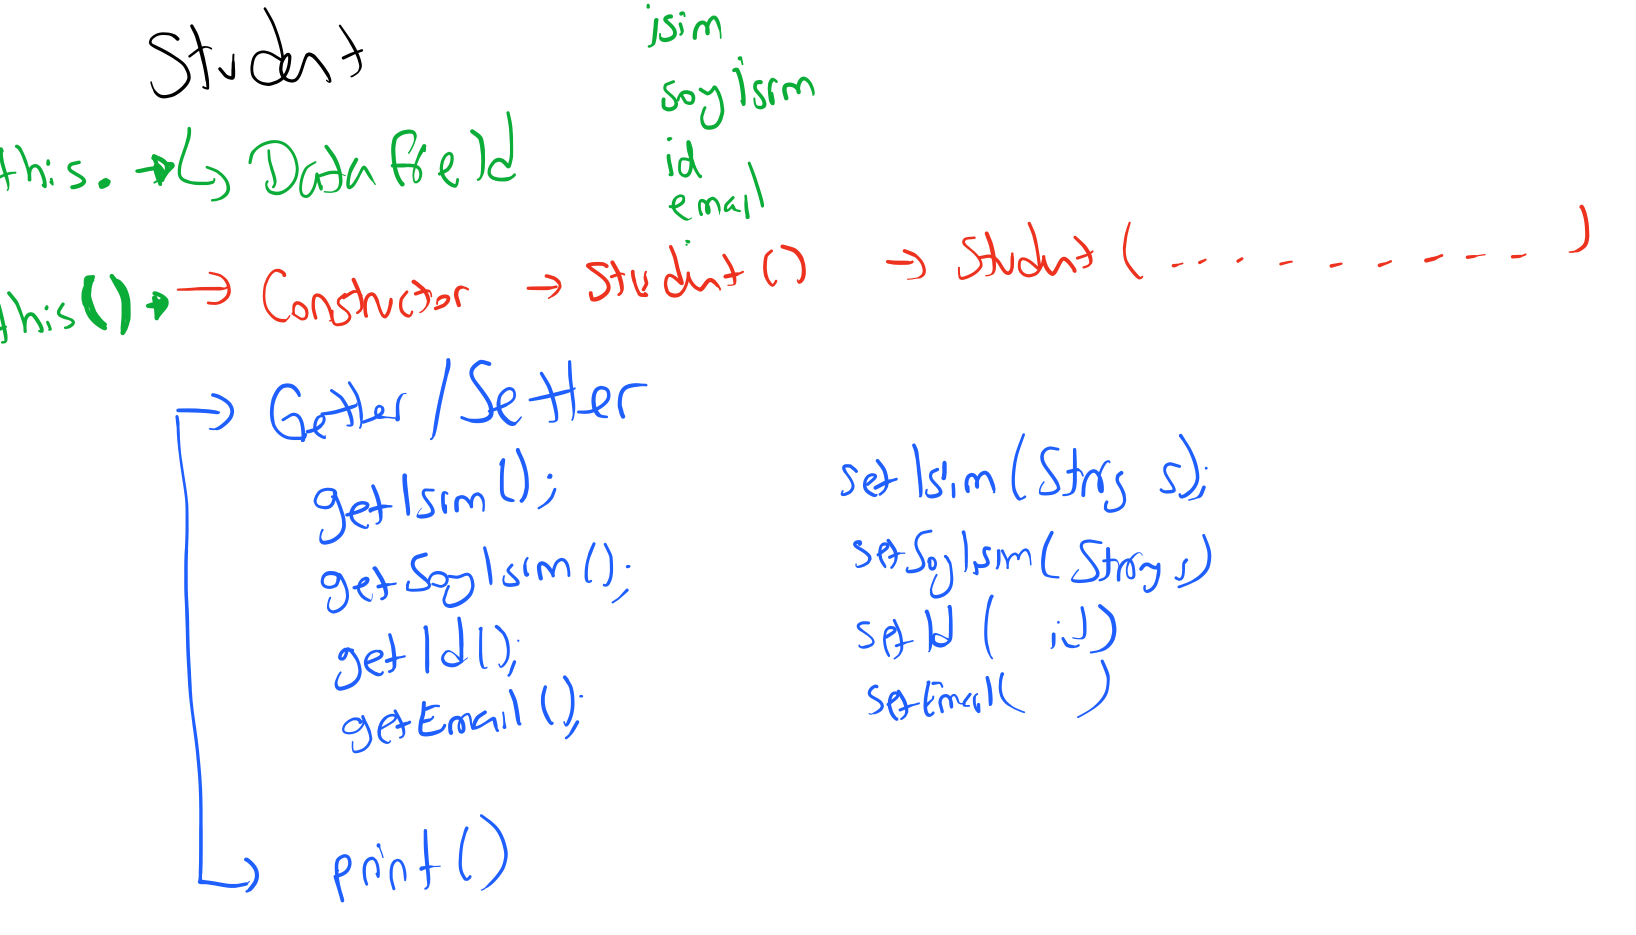 Student
isim
soyIsim
id
email
this. → Data field
this() → → Constructor → Student() → Student( . . . . . . . . . )
→ Getter / Setter
getIsim();
getSoyIsim();
getId();
getEmail();
setIsim(String s);
setSoyIsim(String s)
setId( id)
setEmail( )
print()